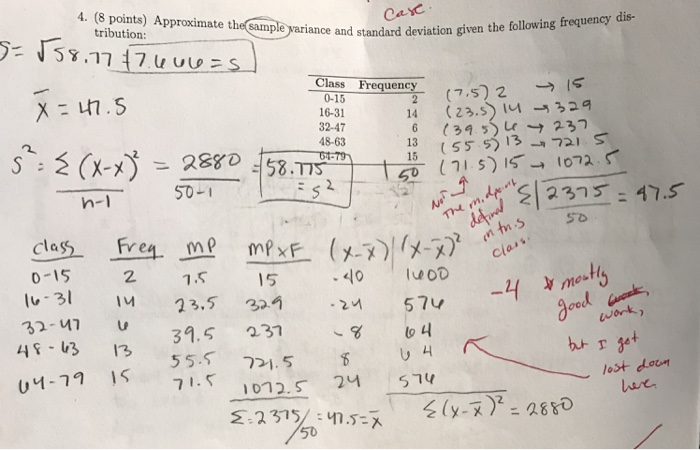 case
4. (8 points) Approximate the sample variance and standard deviation given the following frequency dis-
tribution:
S = √58.77 ≠ 7.666 = s
Class Frequency
0-15 2
16-31 14
32-47 6
48-63 13
64-79 15
50
(7.5) 2 → 15
(23.5) 14 → 329
(39.5) 6 → 237
(55.5) 13 → 721.5
(71.5) 15 → 1072.5
Σ 2375 = 47.5
50
x̄ = 47.5
S² = Σ (x-x)² = 2880 = 58.775
n-1 50-1 = s²
Not
The midpoint
defined
in this
class.
class Freq MP MP×F (x-x̄) (x-x̄)²
0-15 2 7.5 15 -40 1600
16-31 14 23.5 329 -24 576
32-47 6 39.5 237 -8 64
48-63 13 55.5 721.5 8 64
64-79 15 71.5 1072.5 24 576
Σ = 2375/50 = 47.5 = x̄
Σ(x-x̄)² = 2880
-4 * mostly
good work,
but I got
lost down
here.